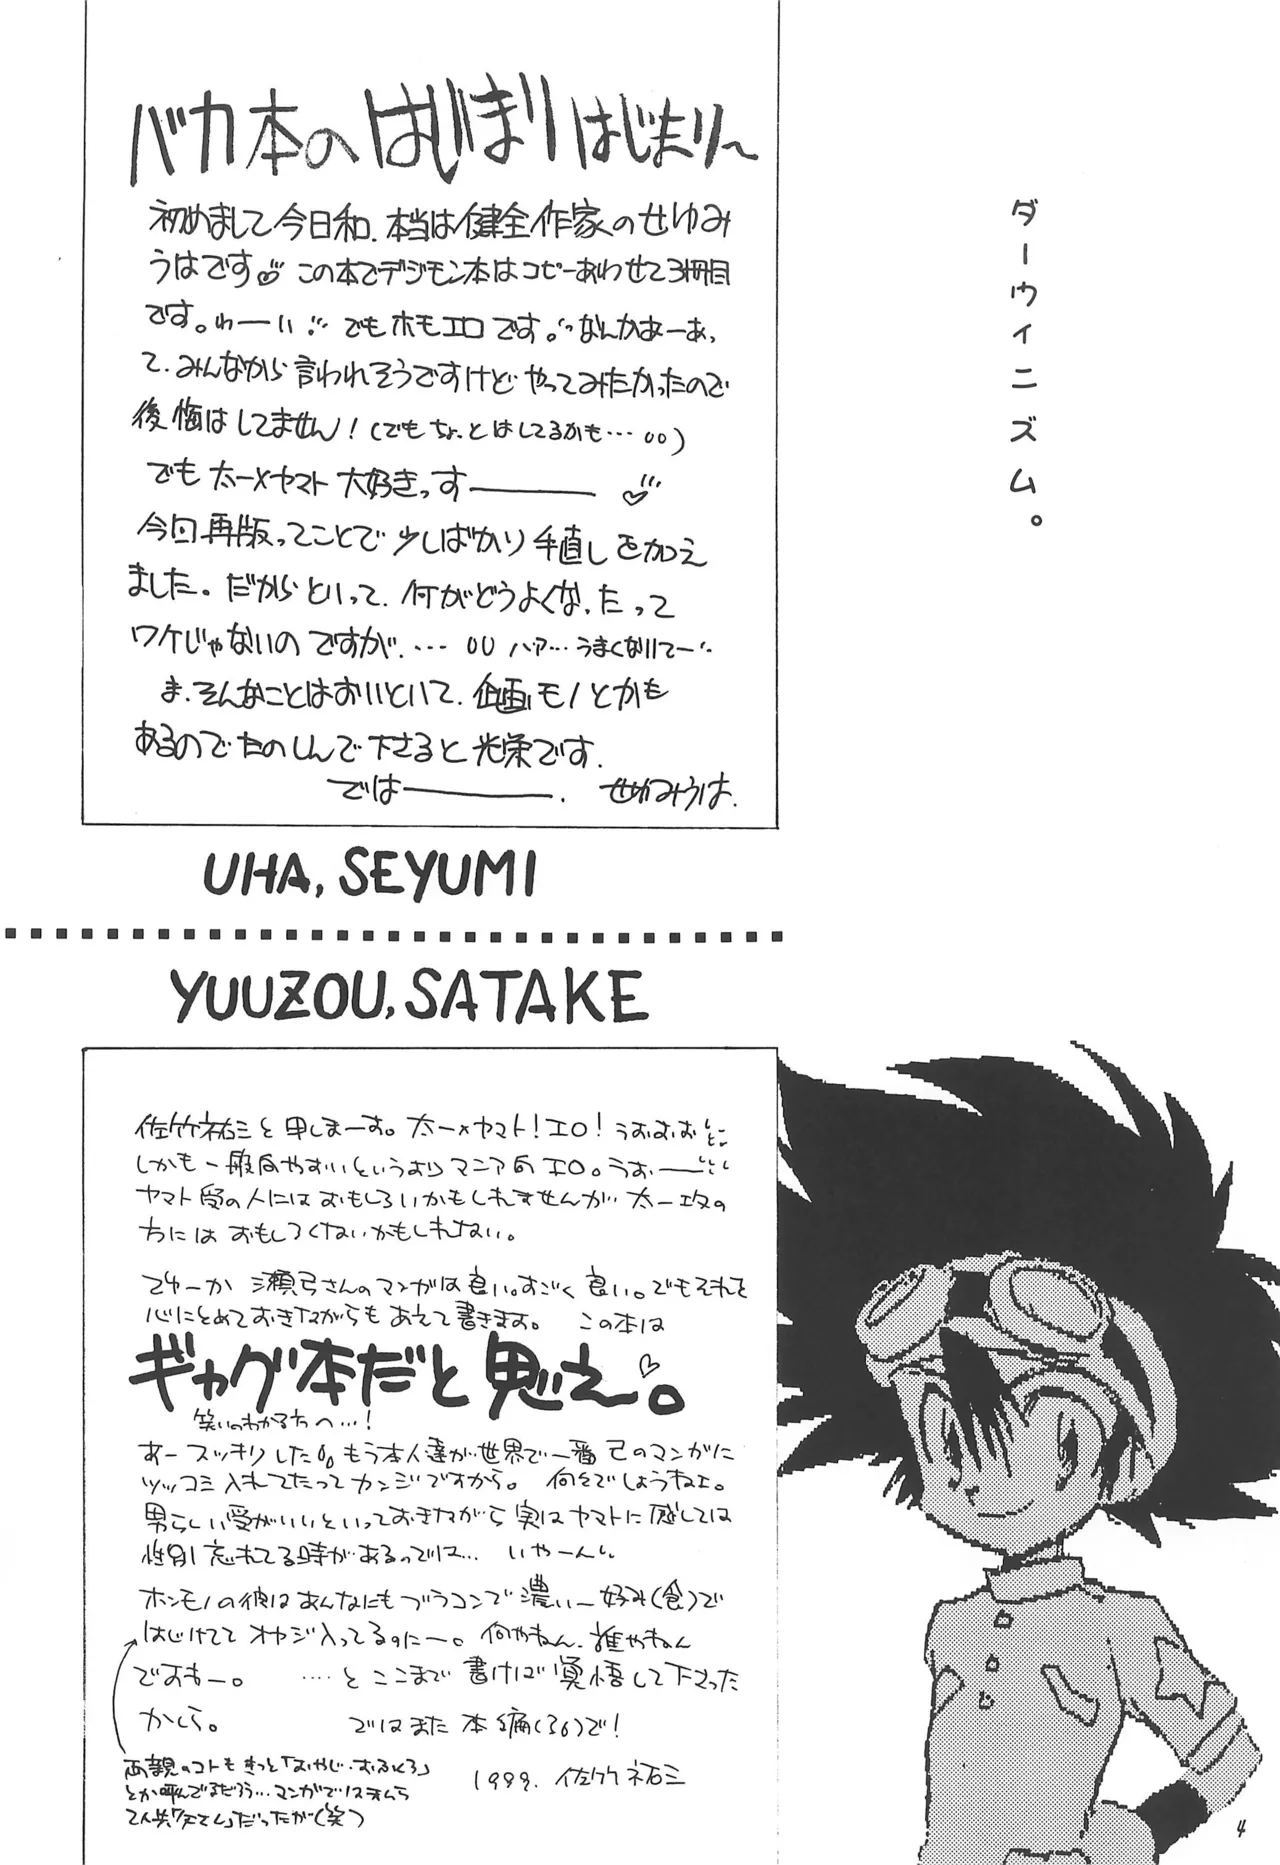 バカ本のはじまりはじまり〜
初めまして今日和、本当は健全作家のせゆみ
うはです♡この本でデジモン本はコピーあわせて3冊目
です。わーい!でもホモエロです。なんかあーあっ
て、みんなから言われそうですけどやってみたかったので
後悔はしてません!(でもちょっとはしてるかも…)
でも太一×ヤマト大好きっすーーー♡
今回再版ってことで少しばかり手直しを加え
ました。だからといって、何がどうよくなったって
ワケじゃないのですが、…ハァ…うまくないてー
ま、そんなことはおいといて、企画モノとかも
あるのでたのしんで下さると光栄です。
ではーーー.
UHA, SEYUMI
ダーウィニズム。
YUUZOU, SATAKE
佐竹祐三と申しまーす。太一×ヤマト!エロ!うおおお
しかも一般向やすいというよりマニア向エロ。うおーー
ヤマト受の人にはおもしろいかもしれませんが太一攻の
方にはおもしろくないかもしれない。
でゆーか 三瀬弓さんのマンガは良い。すごく良い。でもそれを
心にとめておきながらもあえて書きます。この本は
ギャグ本だと思え。♡
笑いのわかる方へ…!
あースッキリした。もう本人達が世界で一番己のマンガに
ツッコミ入れてたってカンジですから。何々でしょうねェ。
男らしい受がいいといっておきながら実はヤマトに感しては
性別忘れてる時があるのでは…いやーんい
ホンモノの彼はあんなにもブラコンで濃いー好み(食)で
はじけててオヤジ入ってるのにー。何やねん、誰やねん
ですわー。 …とここまで書けば覚悟して下さった
かしら。 ではまた本編(36)で!
両親のコトもきっと「おやじ・おふくろ」
とか呼んでるだろう…マンガでは
だったが(笑)
1999. 佐竹祐三
4